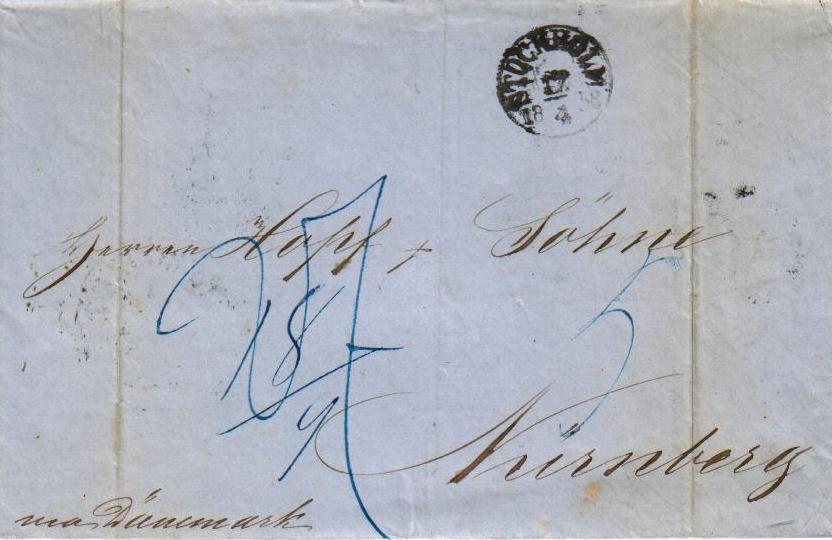 STOCKHOLM
17
4
18 58
Herren Hopf + Söhne
27
18/9
5
Nürnberg
via Dänemark